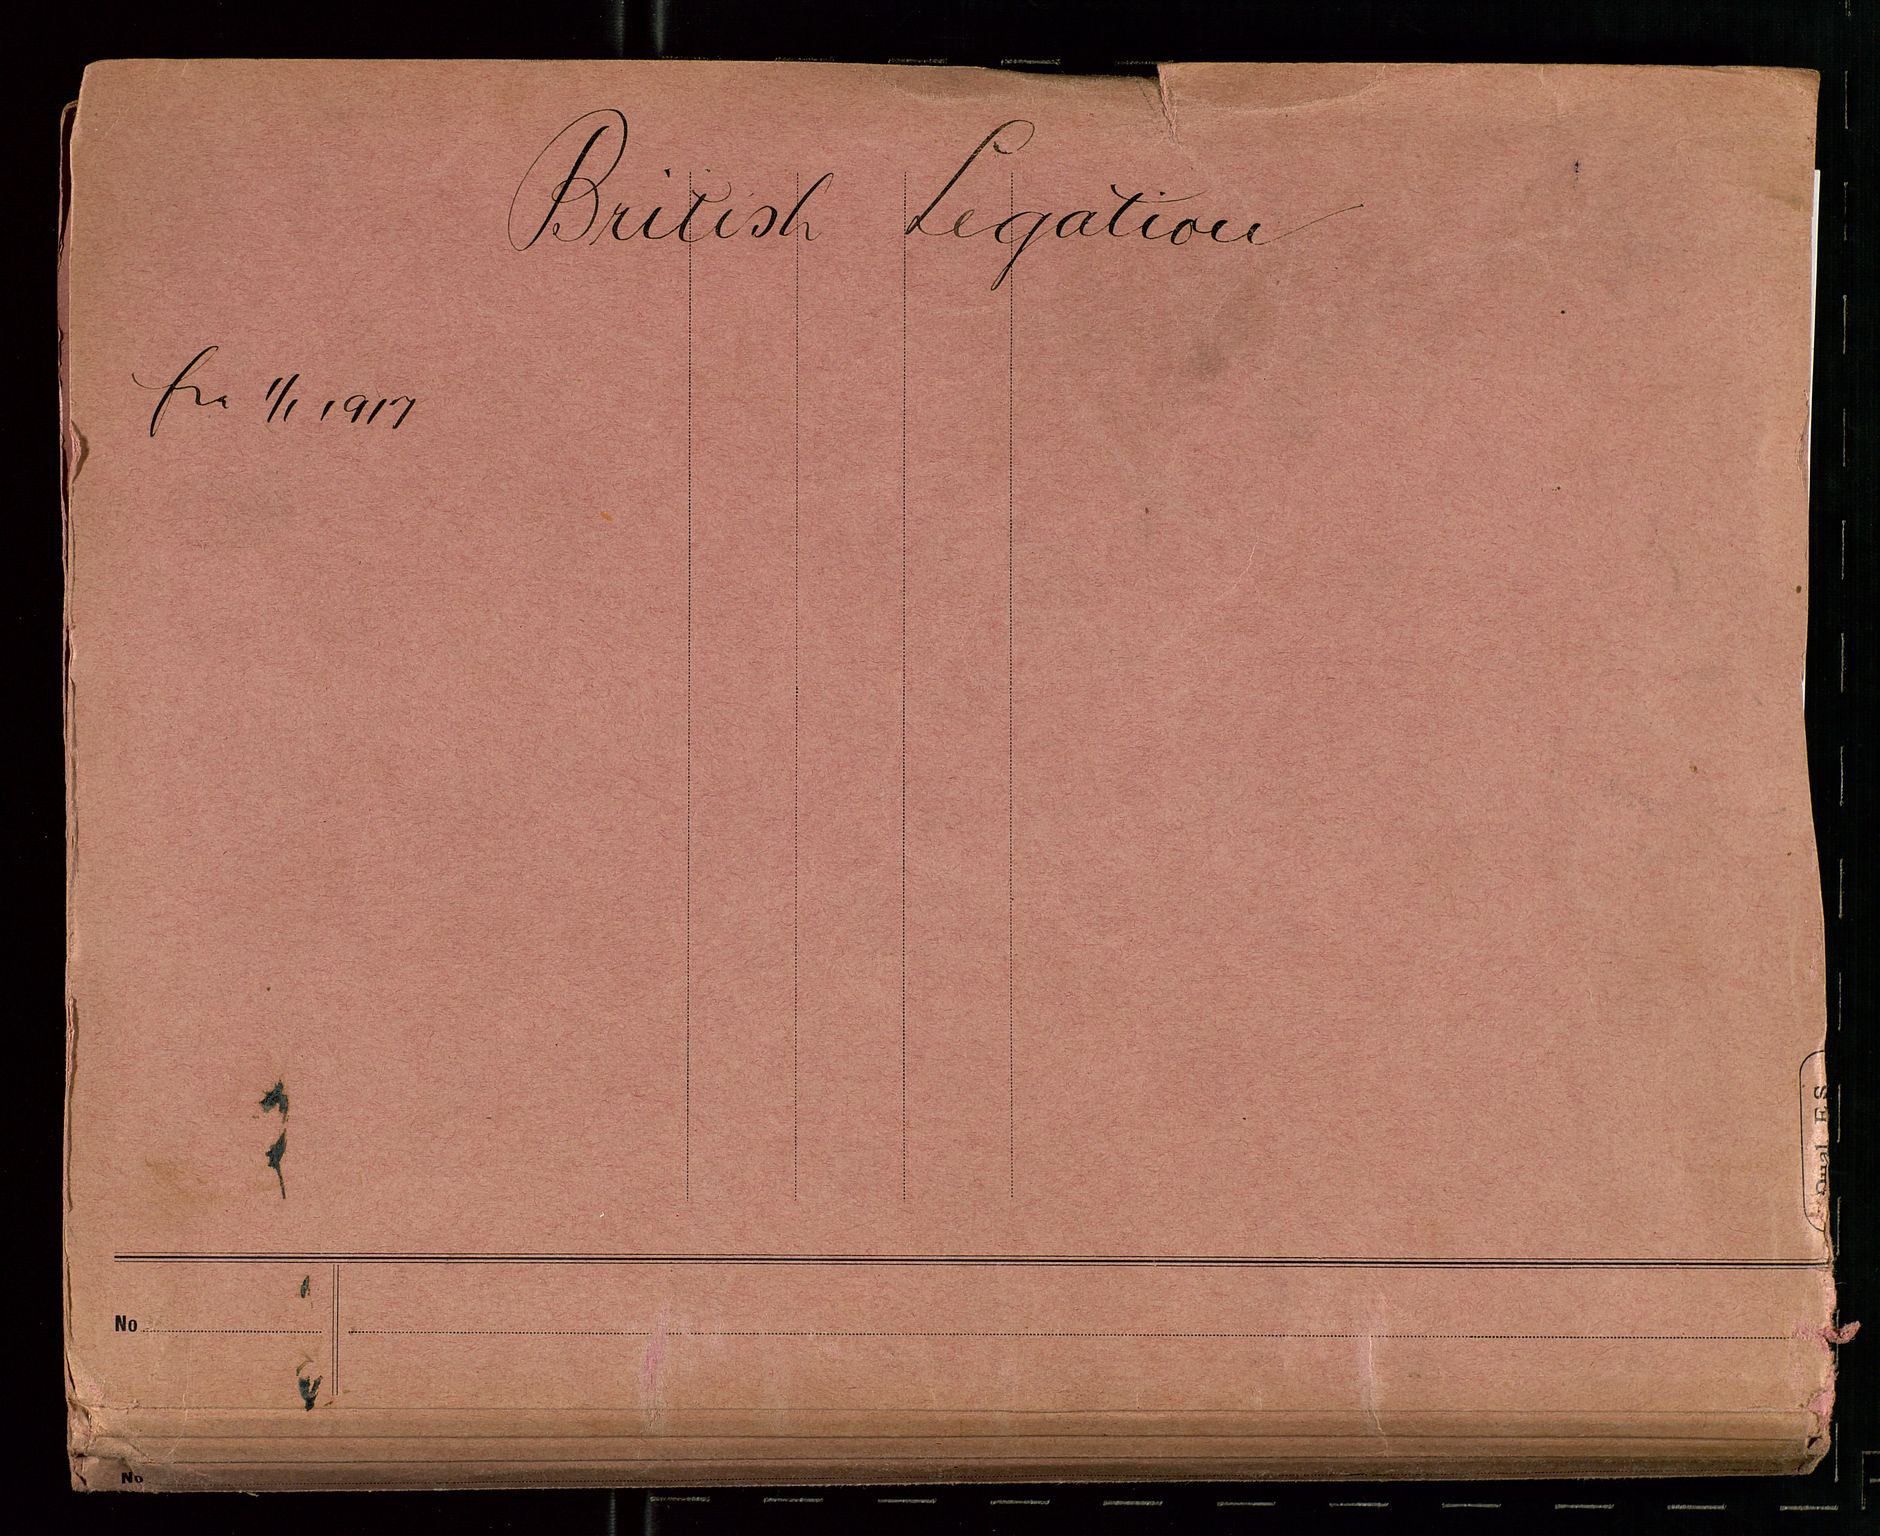 British Legation
fra 1/1 1917
Qual ES
No
No